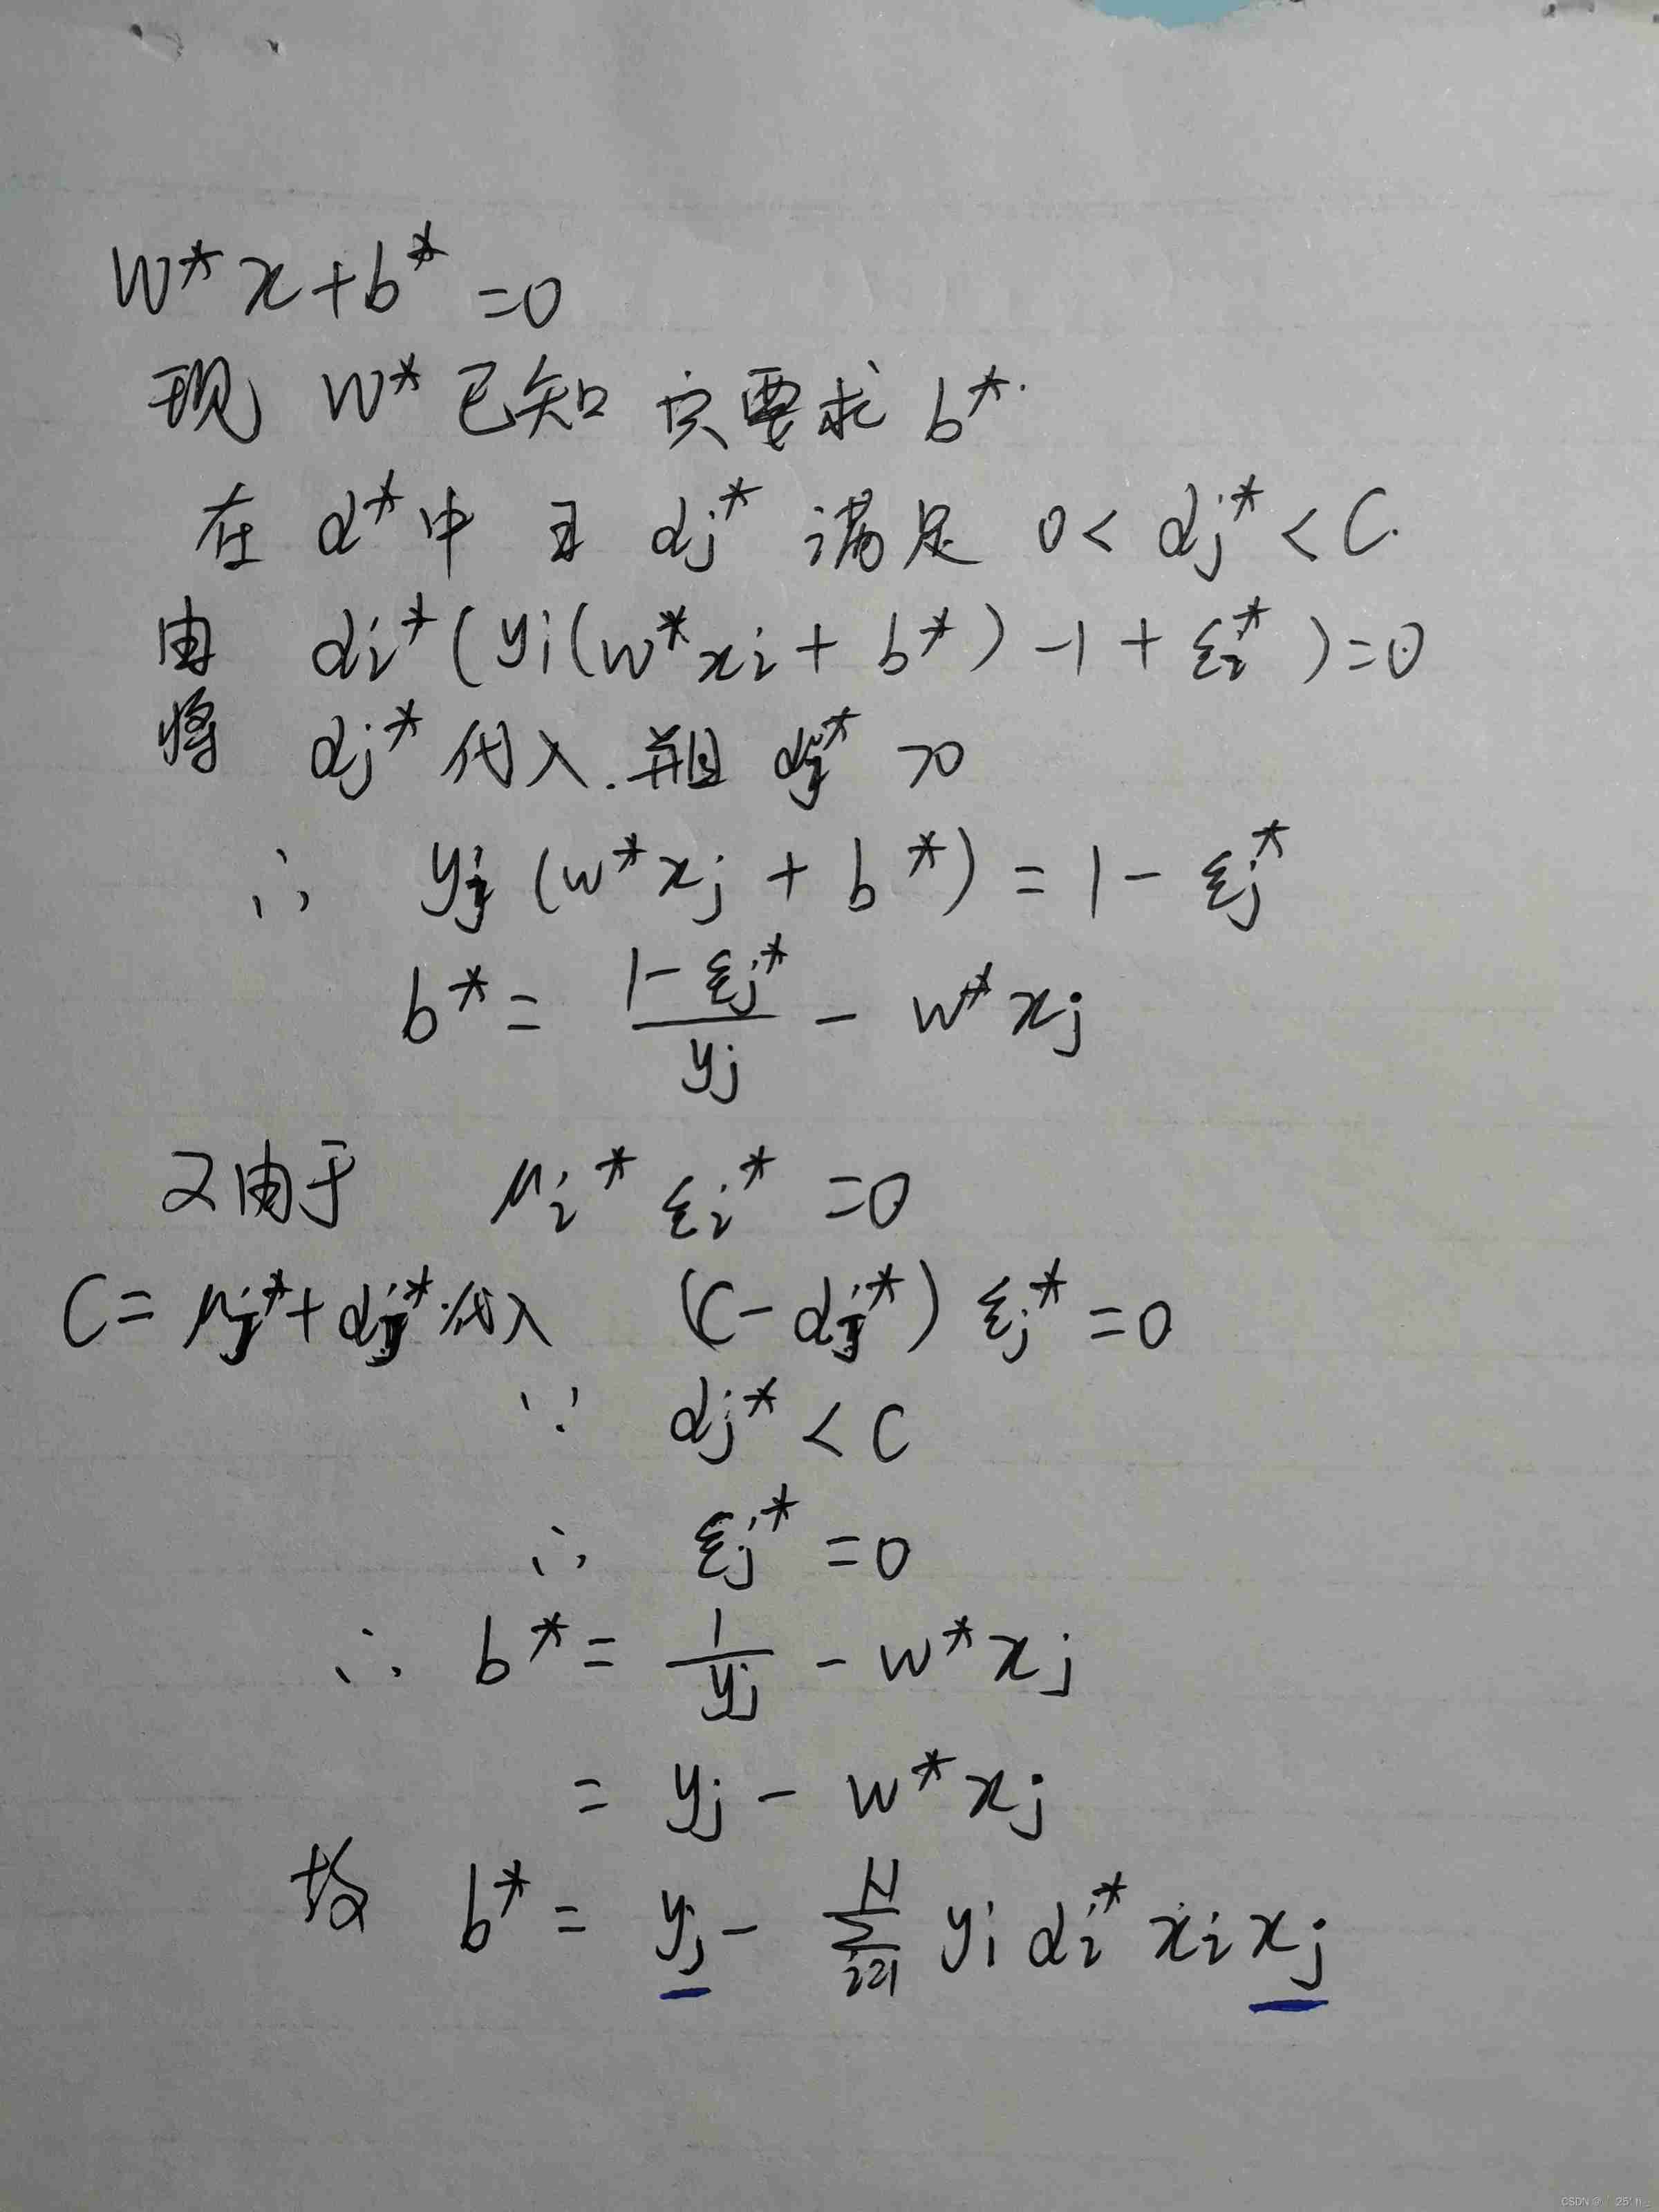 w* x + b* = 0
现 w* 已知 只要求 b*.
在 α* 中 ∃ αj* 满足 0 < αj* < C.
由 αi* (yi(w* xi + b*) - 1 + ξi*) = 0
将 αj* 代入. 并且 αj* >0
∴ yj (w* xj + b*) = 1 - ξj*
b* = (1 - ξj*) / yj - w* xj
又由于 μi* ξi* = 0
C = μj* + αj* 代入 (C - αj*) ξj* = 0
∵ αj* < C
∴ ξj* = 0
∴ b* = 1/yj - w* xj
= yj - w* xj
故 b* = yj - ∑_{i=1}^{N} yi αi* xi xj
CSDN @